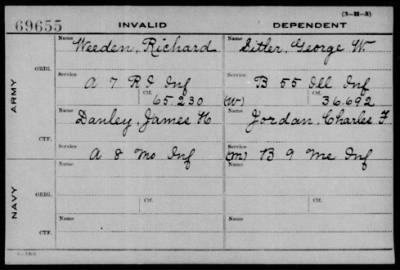 (3-H-3)
69655 INVALID DEPENDENT
ARMY
ORIG.
Name Weeden, Richard Name Sitler, George W.
Service A 7 R I Inf Service B 55 Ill Inf
Ctf. 65230 (W) Ctf. 36.692
CTF.
Name Danley, James H Name Jordan, Charles F
Service A 8 Mo Inf Service (M) B 9 Me Inf
NAVY
ORIG.
Name Name
Ctf. Ctf.
CTF.
Name Name